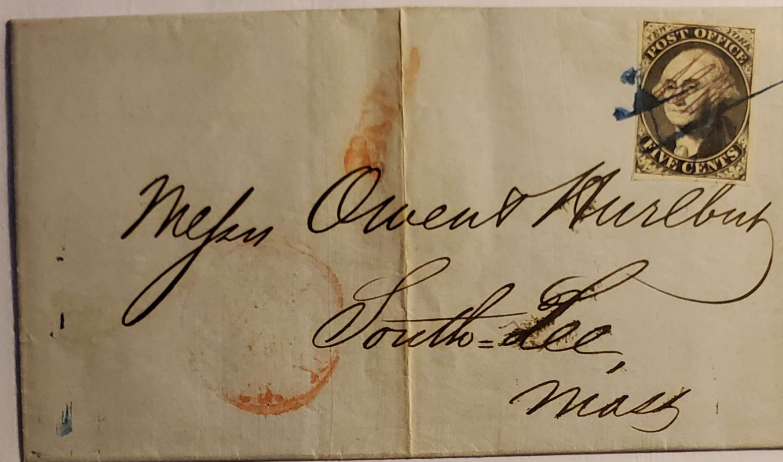 NEW YORK
POST OFFICE
FIVE CENTS
Messrs Owen & Hurlbut
South=Lee,
Mass